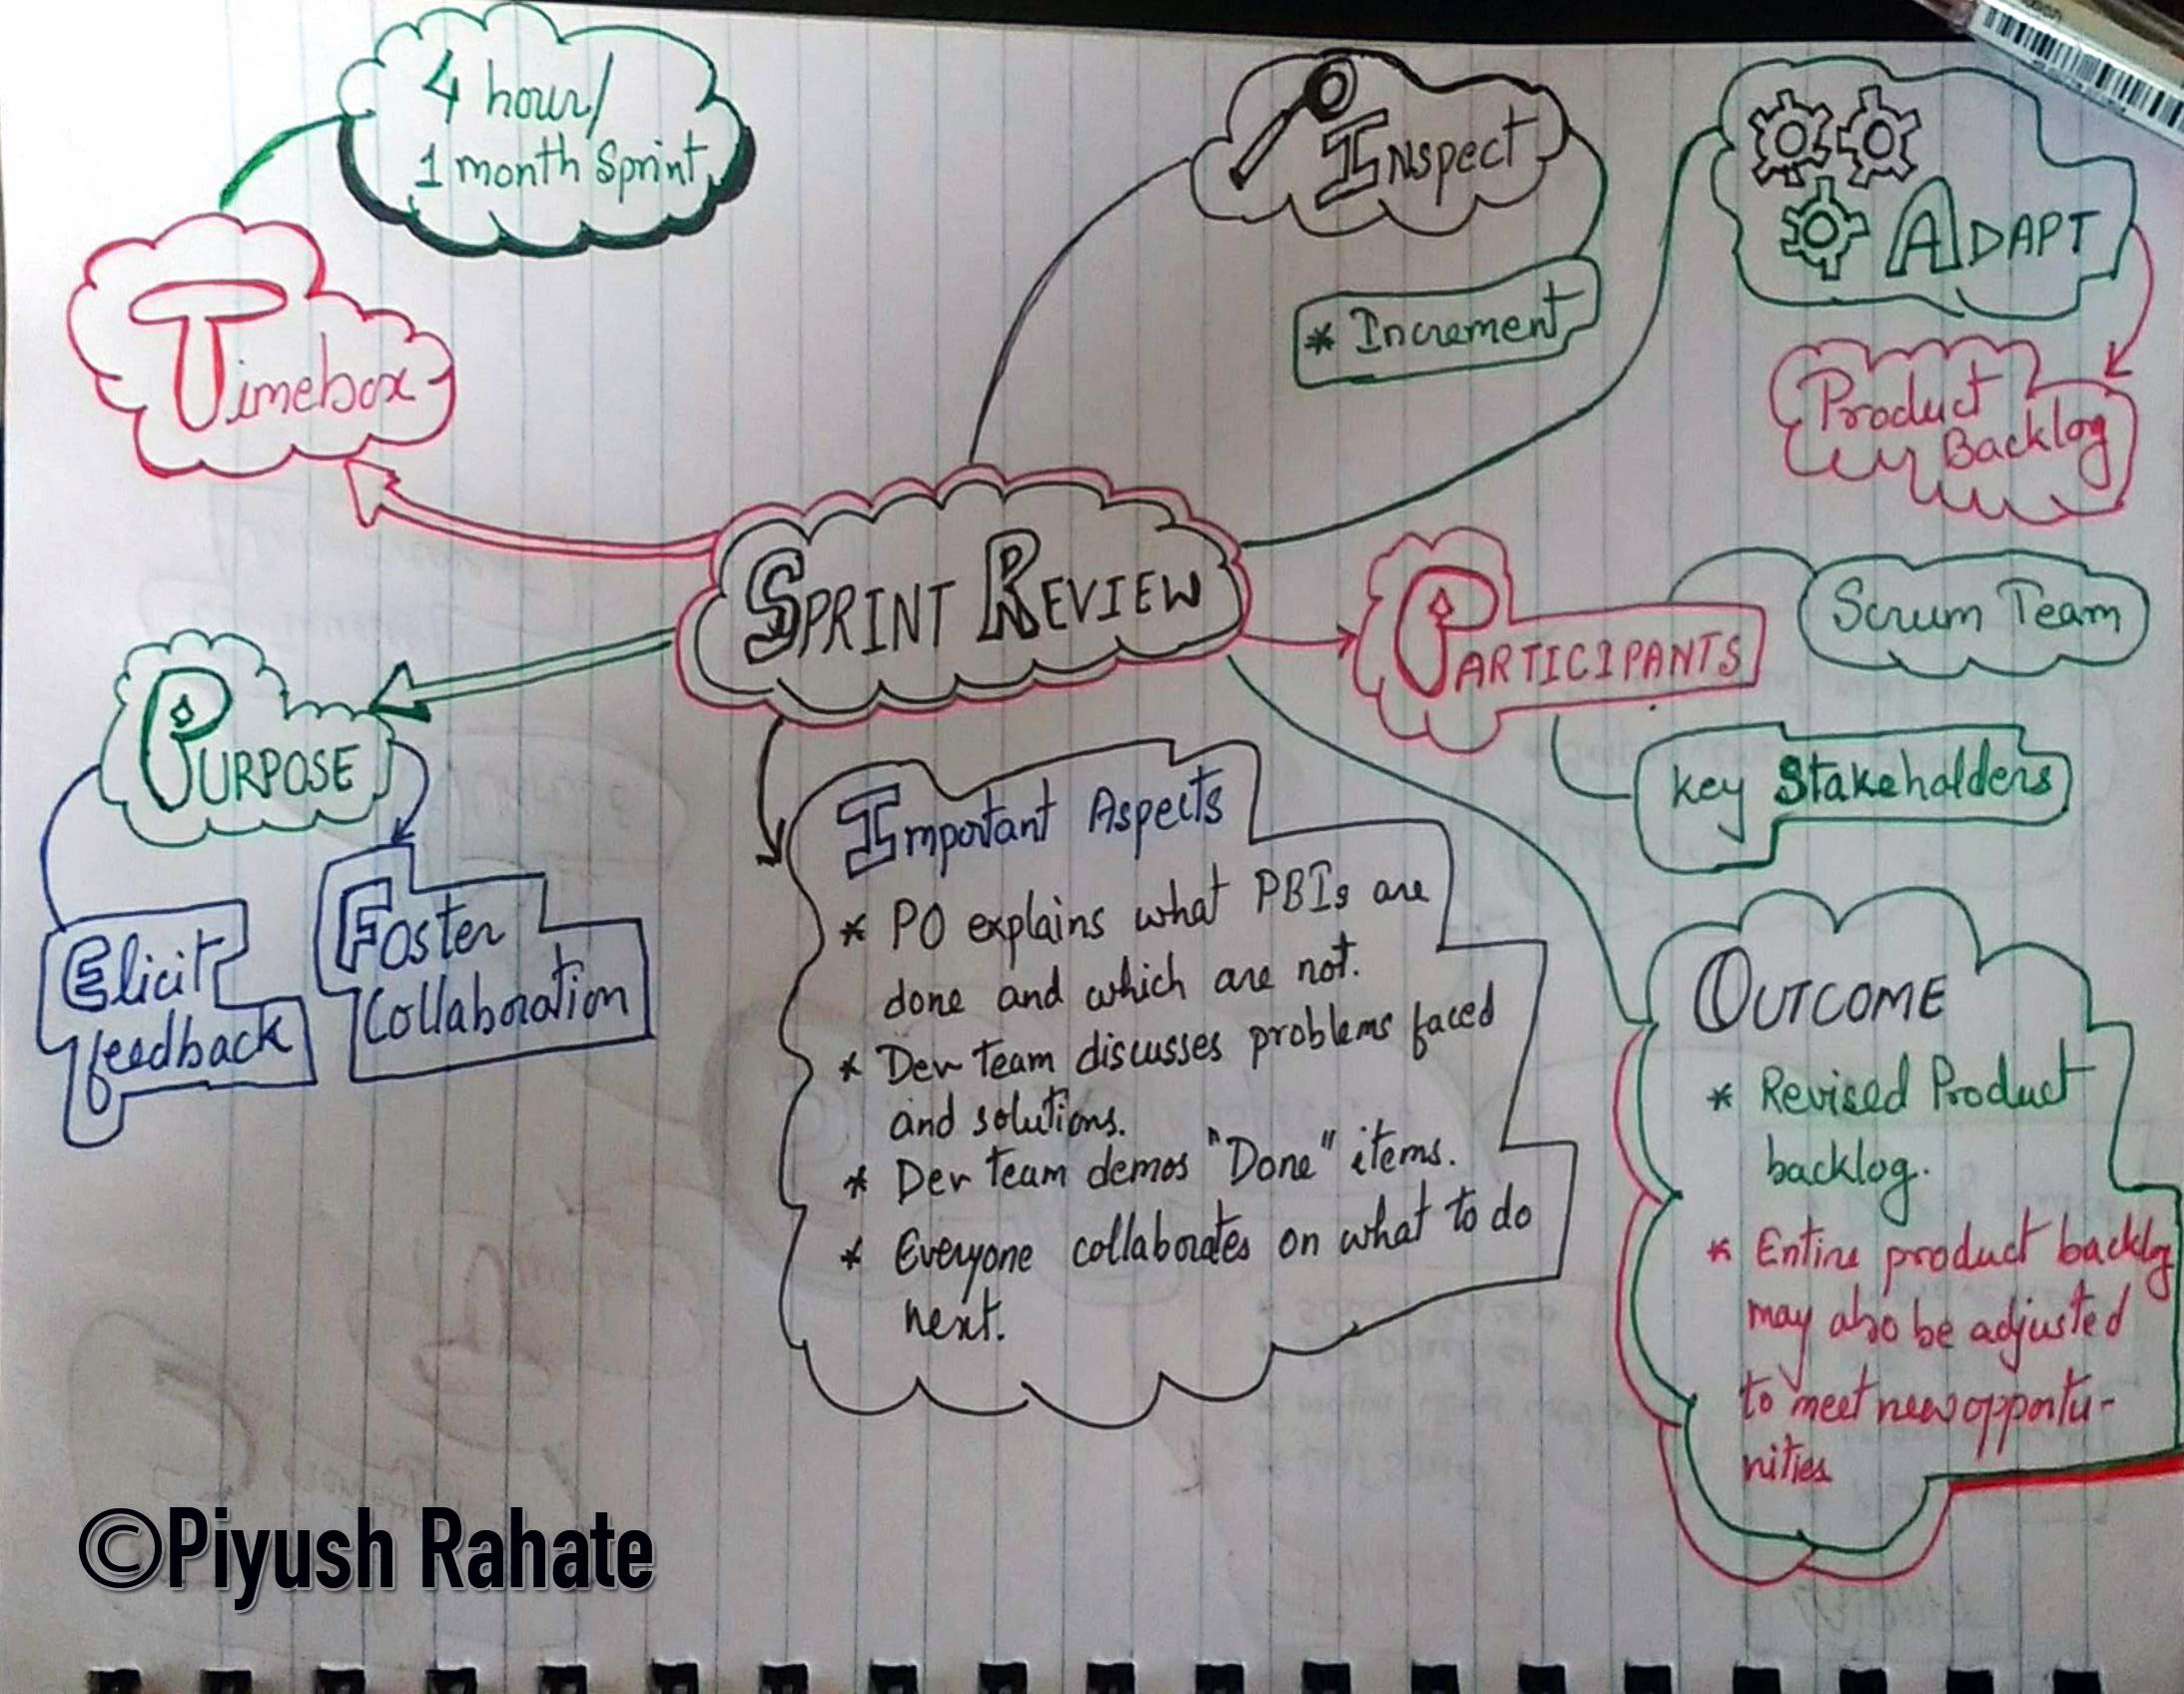 4 hour/
1 month Sprint
Timebox
Inspect
* Increment
ADAPT
Product
Backlog
SPRINT REVIEW
PARTICIPANTS
Scrum Team
Key Stakeholders
PURPOSE
Elicit
feedback
Foster
Collaboration
Important Aspects
* PO explains what PBIs are
done and which are not.
* Dev team discusses problems faced
and solutions.
* Dev team demos "Done" items.
* Everyone collaborates on what to do
next.
OUTCOME
* Revised Product
backlog.
* Entire product backlog
may also be adjusted
to meet new opportu-
nities
©Piyush Rahate